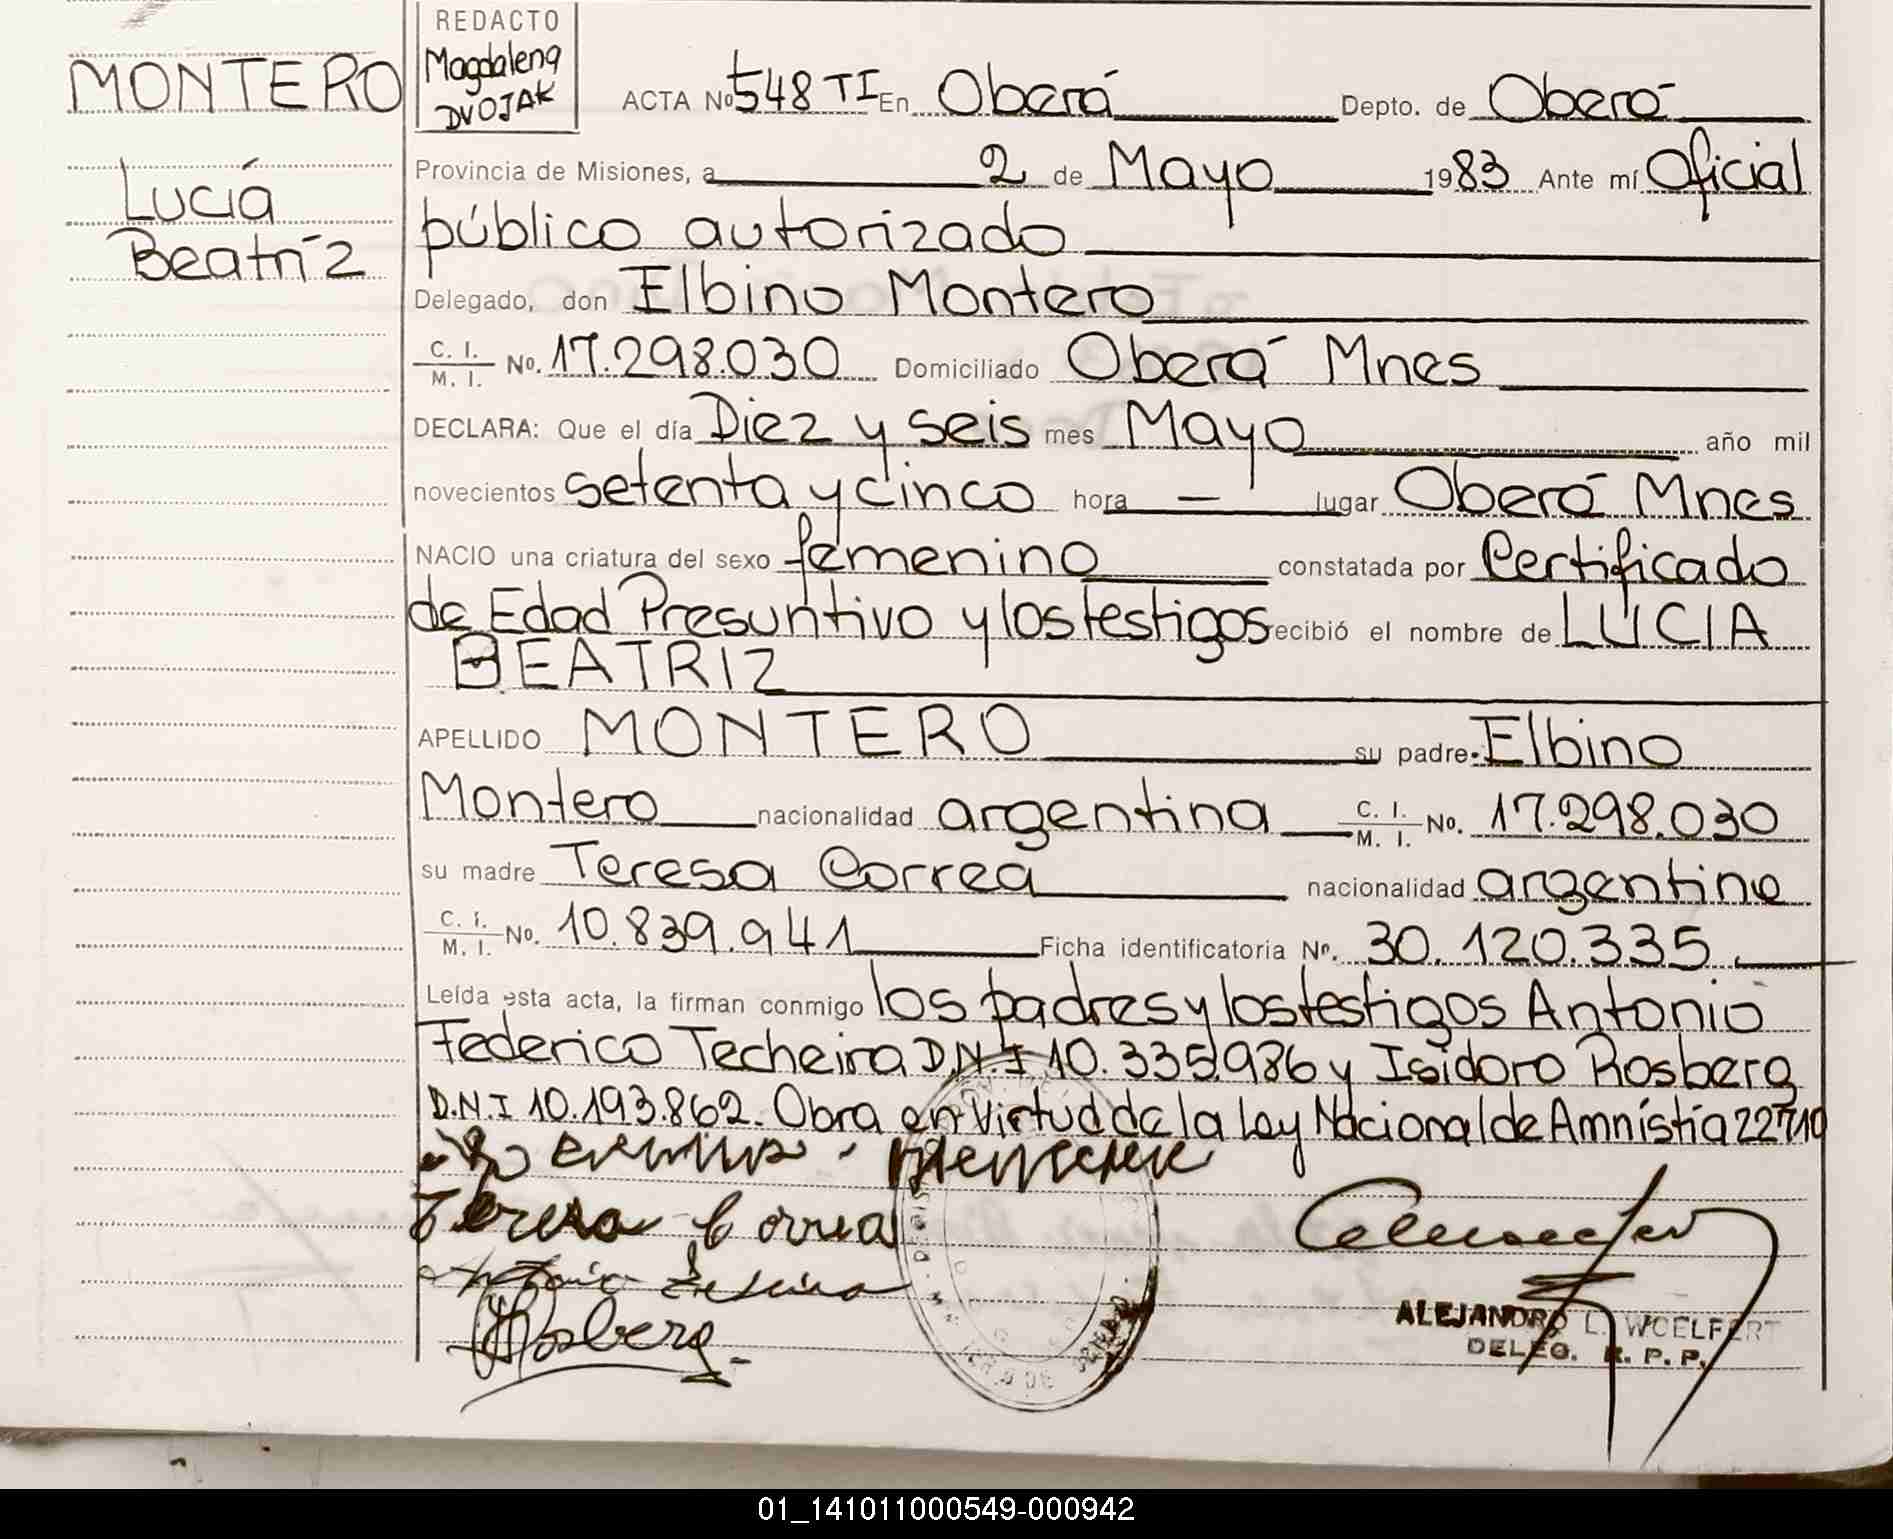 MONTERO
Lucía
Beatríz
REDACTO
Magdalena
DVOJAK
ACTA No 548 TI En Oberá Depto. de Oberá
Provincia de Misiones, a 2 de Mayo 1983 Ante mí Oficial
público autorizado
Delegado, don Elbino Montero
C. I. / M. I. No. 17.298.030 Domiciliado Oberá Mnes
DECLARA: Que el día Diez y seis mes Mayo año mil
novecientos setenta y cinco hora — lugar Oberá Mnes
NACIO una criatura del sexo femenino constatada por Certificado
de Edad Presuntivo y los testigos recibió el nombre de LUCIA
BEATRIZ
APELLIDO MONTERO su padre Elbino
Montero nacionalidad argentina C. I. / M. I. No. 17.298.030
su madre Teresa Correa nacionalidad argentina
C. I. / M. I. No. 10.839.941 Ficha identificatoria No. 30.120.335
Leída esta acta, la firman conmigo los padres y los testigos Antonio
Federico Techeira D.N.I 10.335.986 y Isidoro Rosberg
D.N.I 10.193.862. Obra en Virtud de la Ley Nacional de Amnistía 22710
Teresa Correa
Rosberg
ALEJANDRO L. WOELFERT
DELEG. R. P. P.
01_141011000549-000942